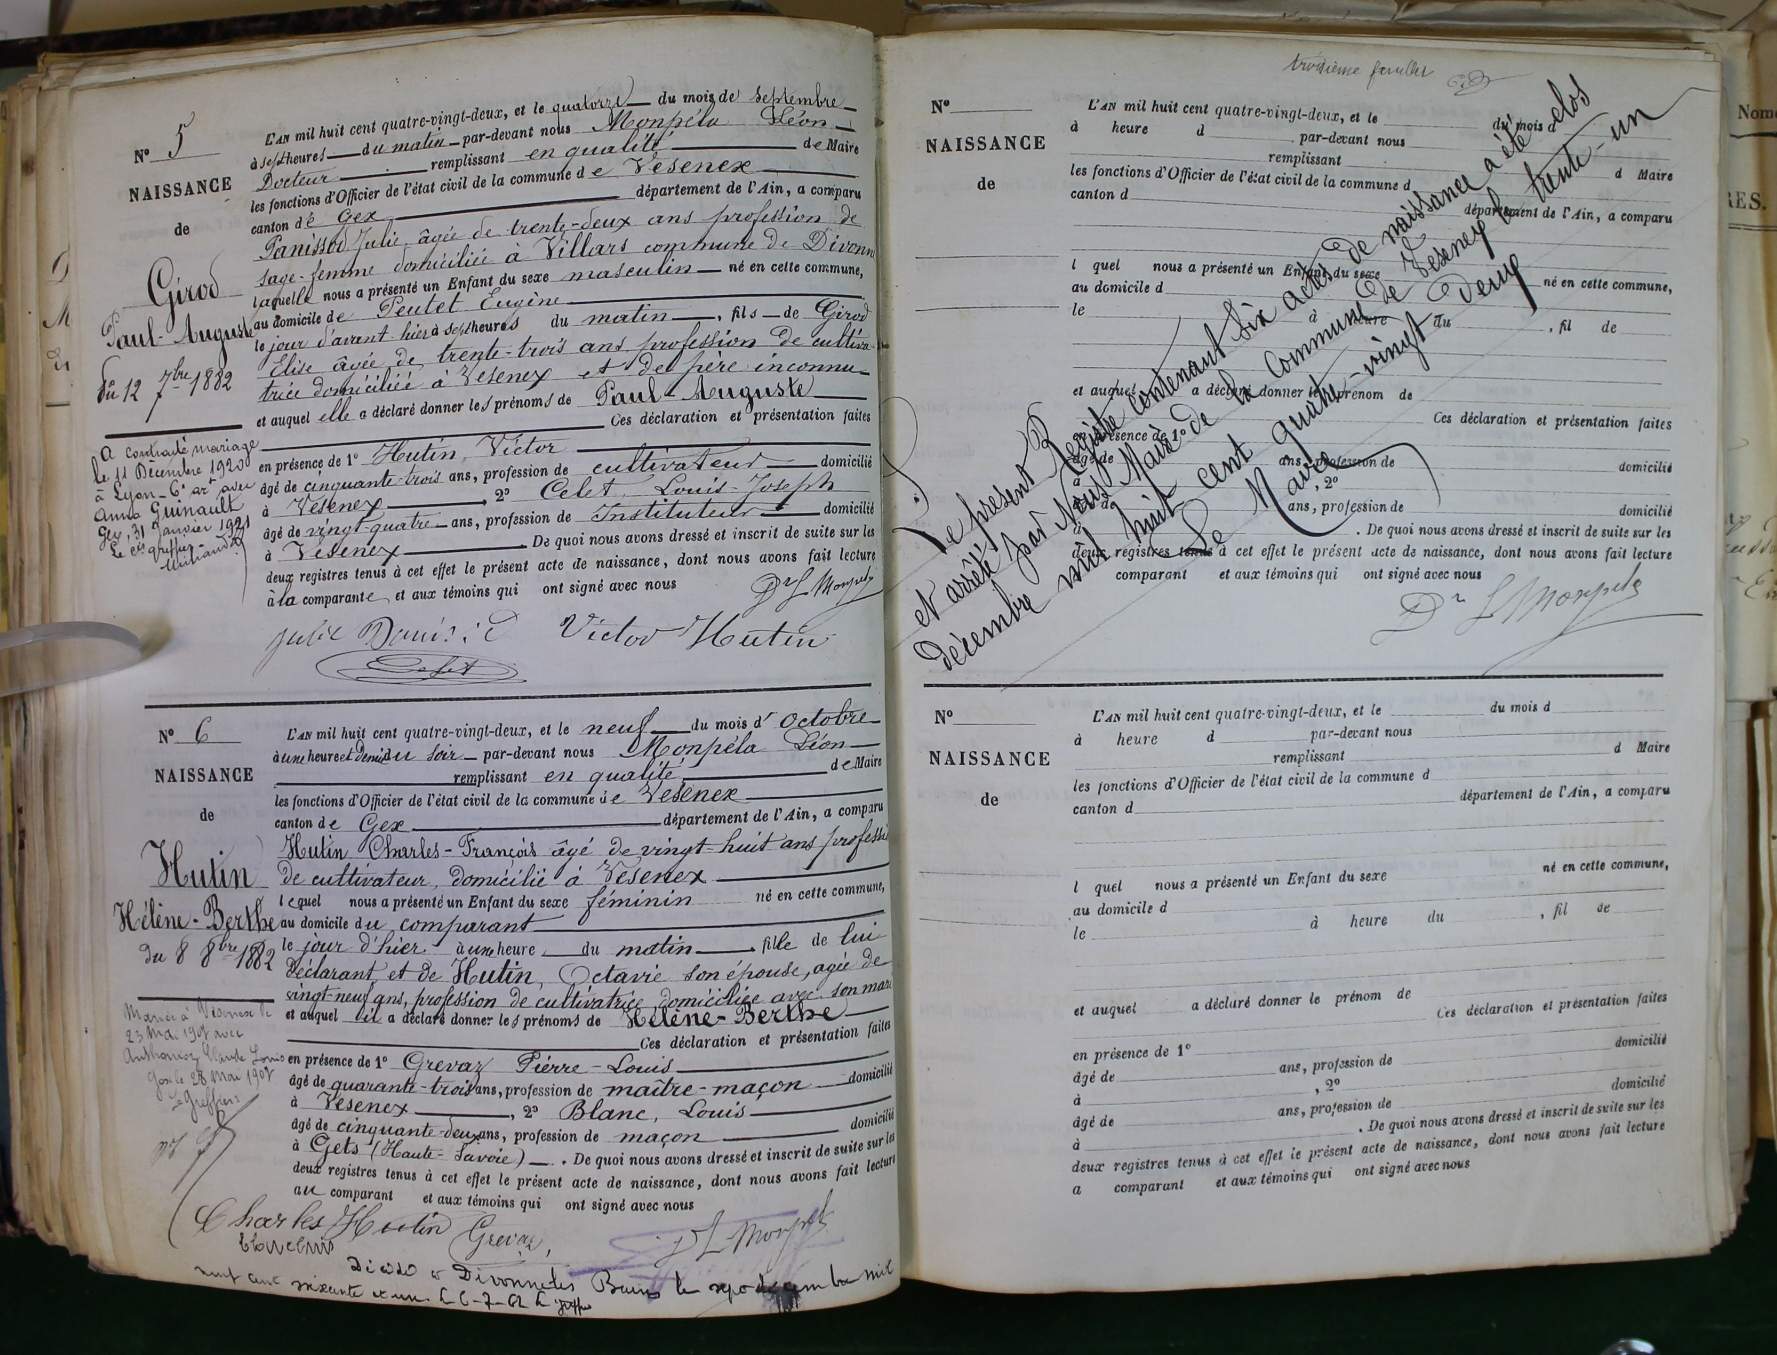 N° 5
NAISSANCE
de
Girod
Paul-Auguste
du 12 7bre 1882
A contracté mariage
le 11 Décembre 1920
à Lyon - 6e art avec
Anna Guinault
Gex, 31 Janvier 1921
Le greffier
L'AN mil huit cent quatre-vingt-deux, et le quatorze du mois de Septembre
à sept heures du matin par-devant nous Monpéla Léon
Docteur remplissant en qualité de Maire
les fonctions d'Officier de l'état civil de la commune de Vesenex
canton de Gex département de l'Ain, a comparu
Panissod Julie, âgée de trente-deux ans profession de
sage-femme domiciliée à Villars commune de Divonne
laquelle nous a présenté un Enfant du sexe masculin né en cette commune,
au domicile de Peutet Eugène
le jour d'avant hier à sept heures du matin, fils de Girod
Elise âgée de trente-trois ans profession de cultiva-
trice domiciliée à Vesenex et de père inconnu
et auquel elle a déclaré donner les prénoms de Paul-Auguste
Ces déclaration et présentation faites
en présence de 1° Hutin, Victor
âgé de cinquante-trois ans, profession de cultivateur domicilié
à Vesenex 2° Celet, Louis-Joseph
âgé de vingt-quatre ans, profession de Instituteur domicilié
à Vesenex. De quoi nous avons dressé et inscrit de suite sur les
deux registres tenus à cet effet le présent acte de naissance, dont nous avons fait lecture
à la comparante et aux témoins qui ont signé avec nous
Dr L Monpela
Julie Panissod Victor Hutin
Celet
N° 6
NAISSANCE
de
Hutin
Hélène-Berthe
du 8 8bre 1882
Mariée à Vésenex le
23 Mai 1908 avec
Anthonioz Claude Louis
Gex le 28 Mai 1908
Le Greffier
L'AN mil huit cent quatre-vingt-deux, et le neuf du mois d'octobre
à une heure et demie du soir par-devant nous Monpéla Léon
remplissant en qualité de Maire
les fonctions d'Officier de l'état civil de la commune de Vesenex
canton de Gex département de l'Ain, a comparu
Hutin Charles-François âgé de vingt-huit ans professi
de cultivateur, domicilié à Vésenex
lequel nous a présenté un Enfant du sexe féminin né en cette commune,
au domicile du comparant
le jour d'hier à une heure du matin, fille de lui
déclarant et de Hutin, Octavie son épouse, agée de
vingt-neuf ans, profession de cultivatrice domiciliée avec son mari
et auquel lui a déclaré donner les prénoms de Hélène-Berthe
Ces déclaration et présentation faites
en présence de 1° Grevaz Pierre-Louis
âgé de quarante-trois ans, profession de maître-maçon domicilié
à Vesenex, 2° Blanc, Louis
âgé de cinquante-deux ans, profession de maçon domicilié
à Gets (Haute-Savoie). De quoi nous avons dressé et inscrit de suite sur les
deux registres tenus à cet effet le présent acte de naissance, dont nous avons fait lecture
au comparant et aux témoins qui ont signé avec nous
Charles Hutin Grevaz,
Dr L Monpela
Décédé à Divonne les Bains le sept décembre mil
neuf cent soixante et un. Le 6-7-62 Le greffier
troisième feuillet
N°
NAISSANCE
de
L'AN mil huit cent quatre-vingt-deux, et le du mois d
à heure d par-devant nous
remplissant d Maire
les fonctions d'Officier de l'état civil de la commune d
canton d département de l'Ain, a comparu
l quel nous a présenté un Enfant du sexe né en cette commune,
au domicile d
le à heure du , fil de
et auquel a déclaré donner le prénom de
Ces déclaration et présentation faites
en présence de 1°
âgé de ans, profession de domicilié
à , 2°
âgé de ans, profession de domicilié
à . De quoi nous avons dressé et inscrit de suite sur les
deux registres tenus à cet effet le présent acte de naissance, dont nous avons fait lecture
comparant et aux témoins qui ont signé avec nous
Le présent Registre contenant Six actes de naissance a été clos
et arrêté par Nous Maire de la Commune de Vesenex le trente-un
décembre mil huit cent quatre-vingt Deux
Le Maire
Dr L Monpela
N°
NAISSANCE
de
L'AN mil huit cent quatre-vingt-deux, et le du mois d
à heure d par-devant nous
remplissant d Maire
les fonctions d'Officier de l'état civil de la commune d
canton d département de l'Ain, a comparu
l quel nous a présenté un Enfant du sexe né en cette commune,
au domicile d
le à heure du , fil de
et auquel a déclaré donner le prénom de
Ces déclaration et présentation faites
en présence de 1°
âgé de ans, profession de domicilié
à , 2°
âgé de ans, profession de domicilié
à . De quoi nous avons dressé et inscrit de suite sur les
deux registres tenus à cet effet le présent acte de naissance, dont nous avons fait lecture
a comparant et aux témoins qui ont signé avec nous